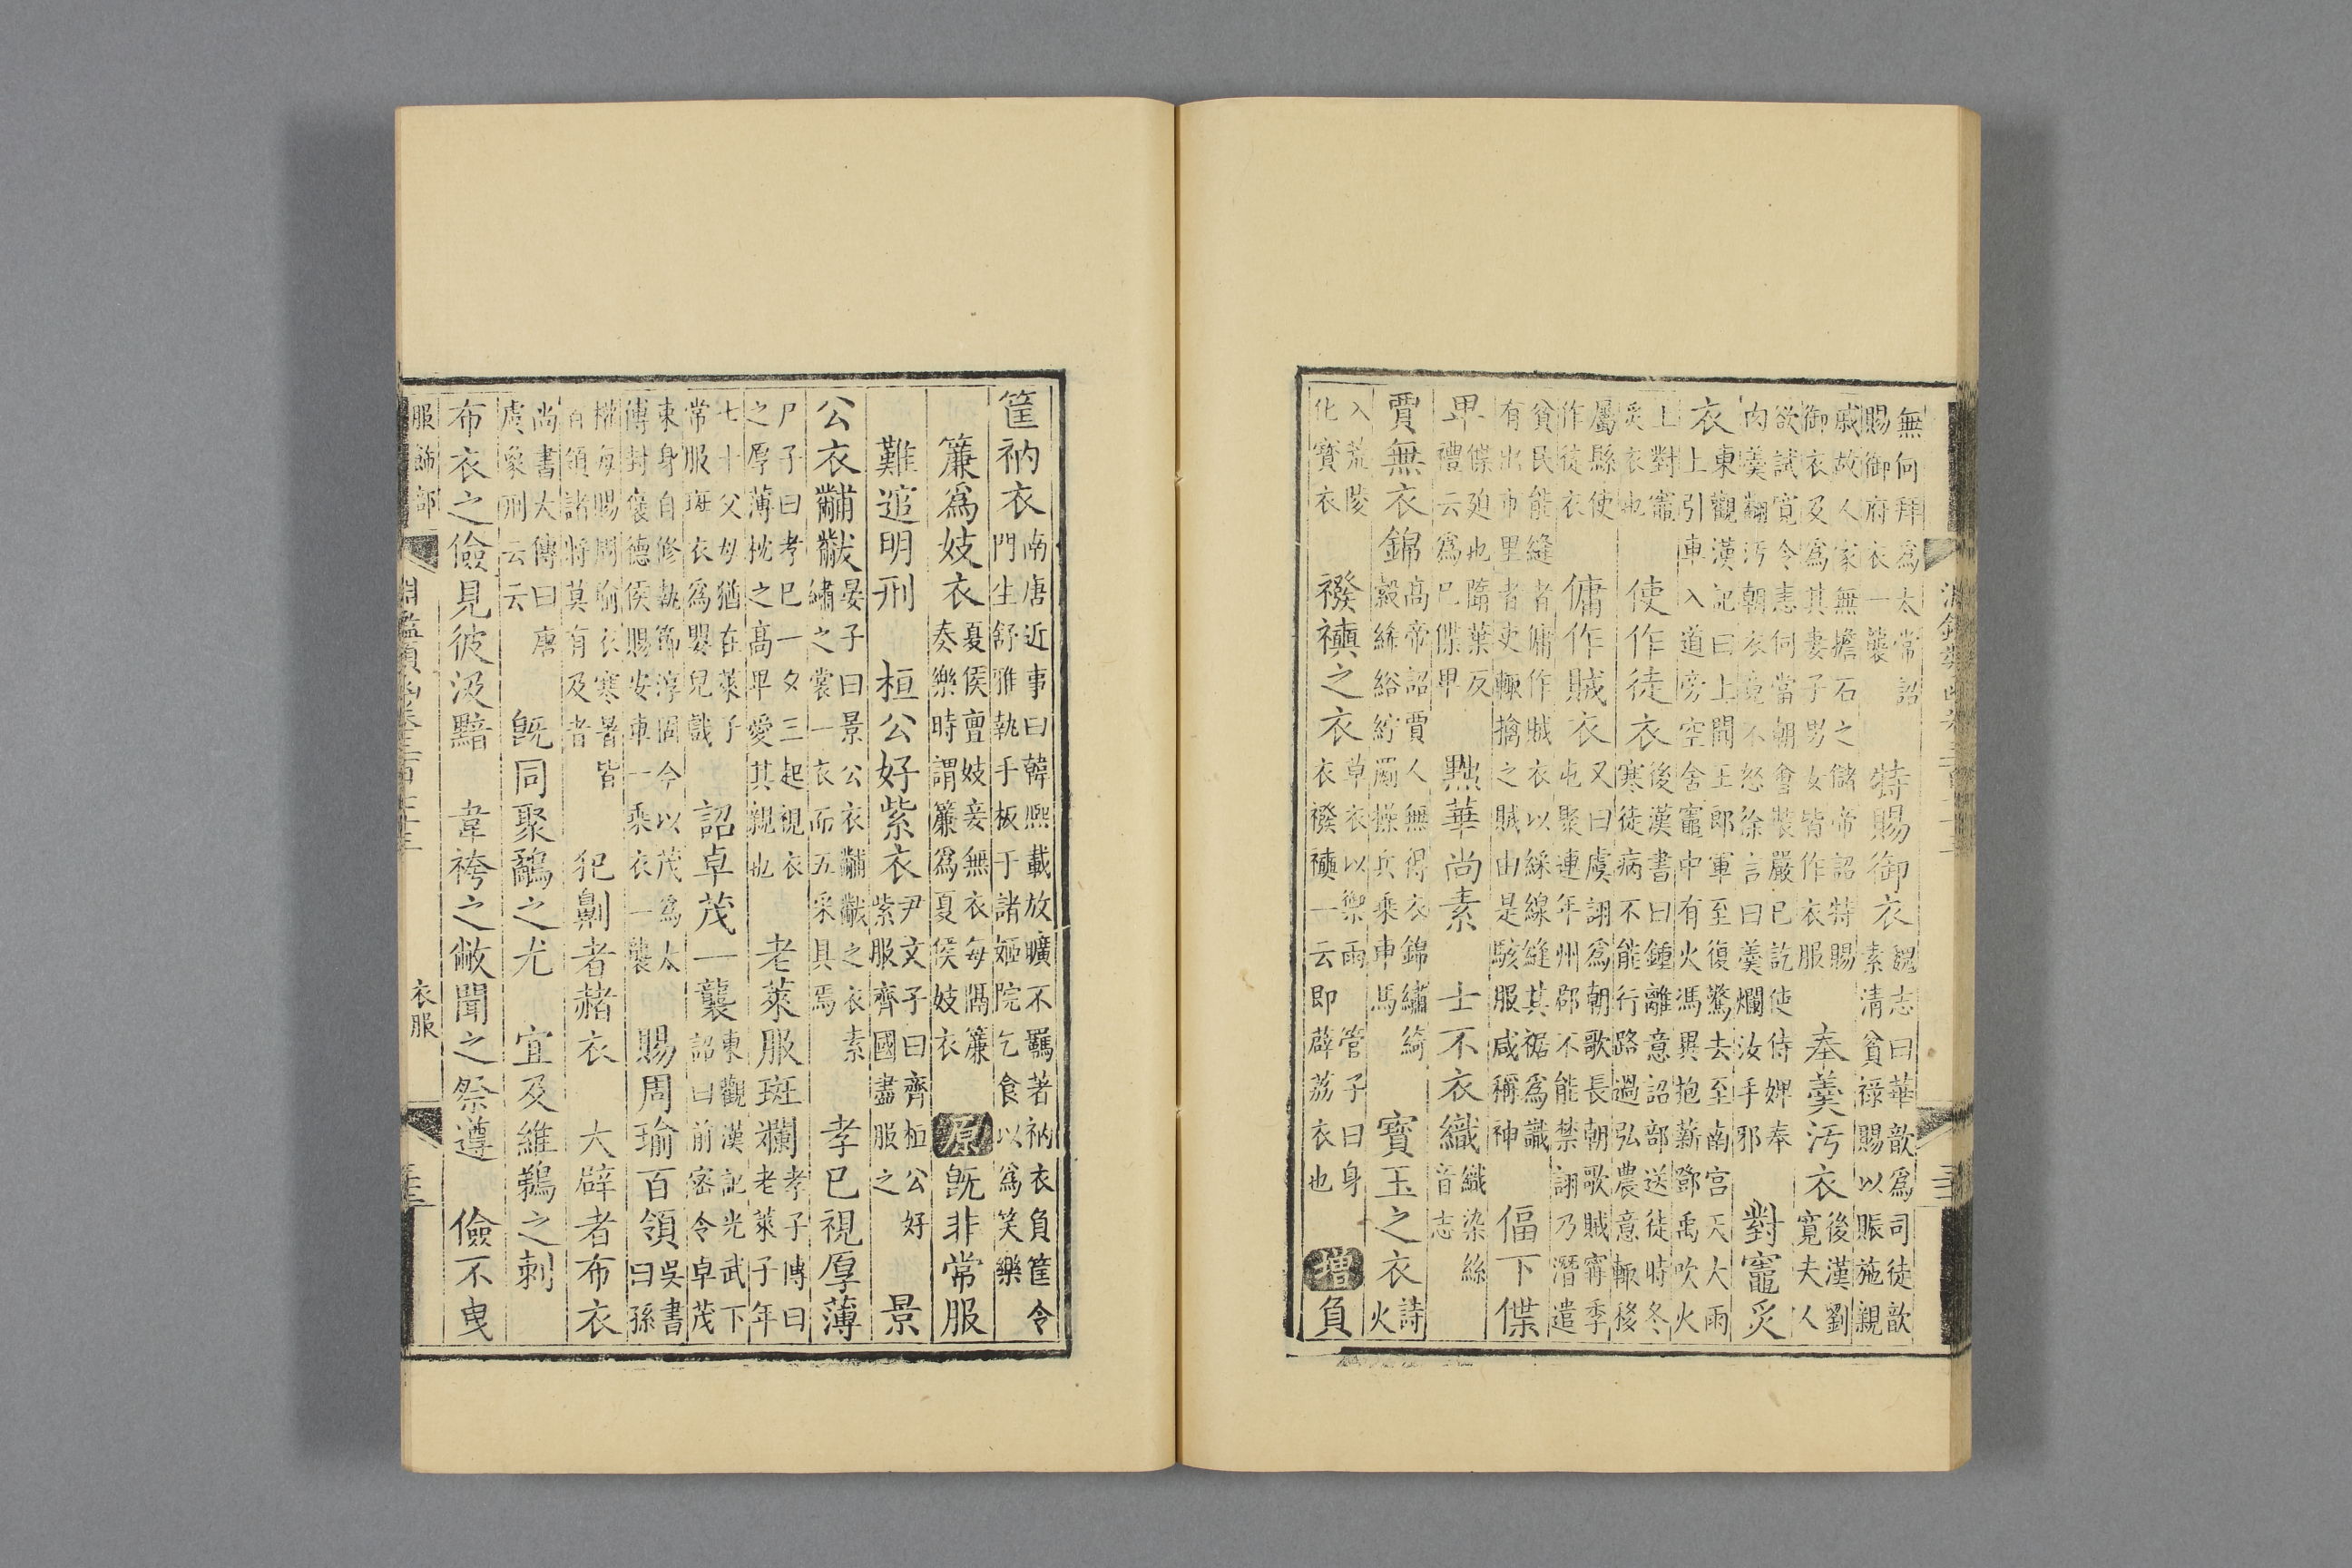 無何拜為太常詔
賜御府衣一襲
特賜御衣
魏志曰華歆為司徒歆
素清貧祿賜以賑施親
戚故人家無擔石之儲帝詔特賜
御衣及為其妻子男女皆作衣服
奉羹污衣
後漢劉
寬夫人
欲試寬令恚伺當朝會裝嚴已訖使侍婢奉
肉羹翻污朝衣寬不恚徐言曰羹爛汝手邪
對竈炙
衣
東觀漢記曰上聞王郎軍至復驚去至南宮天大雨
上引車入道旁空舍竈中有火馮異抱薪鄧禹吹火
上對竈
炙衣也
使作徒衣
後漢書曰鍾離意詔部送徒時冬
寒徒病不能行路過弘農意輒移
屬縣使
作徒衣
傭作賊衣
又曰虞詡為朝歌長朝歌賊甯季
屯聚連年州郡不能禁詡乃潛遣
貧民能縫者傭作賊衣以綵線縫其裾為識
有出市里者吏輒擒之賊由是駭服咸稱神
偪下偞
卑
偞廹也隋葉反
禮云為已偞卑
㸃華尚素 士不衣織
織染絲
音志
賈無衣錦
高帝詔賈人無得衣錦繡綺
縠絺綌紵罽操兵乘車馬
寶玉之衣
詩
火
入荒陵
化寶衣
襏襫之衣
草衣以禦雨 管子曰身
衣襏襫一云即薜荔衣也
增 負
筐衲衣
南唐近事曰韓熙載放曠不羈著衲衣負筐令
門生舒雅執手板于諸姬院乞食以為笑樂
簾為妓衣
夏侯亶妓妾無衣每隔簾
奏樂時謂簾為夏侯妓衣
原 既非常服
難逭明刑 桓公好紫衣
尹文子曰齊桓公好
紫服齊國盡服之
景
公衣黼黻
晏子曰景公衣黼黻之衣素
繡之裳一衣而五采具焉
孝已視厚薄
尸子曰孝已一夕三起視衣
之厚薄枕之高卑愛其親也
老萊服斑斕
孝子傳曰
老萊子年
七十父母猶在萊子
常服斑衣為嬰兒戲
詔卓茂一襲
東觀漢記光武下
詔曰前密令卓茂
束身自修執節淳固今以茂為太
傅封褒德侯賜安車一乘衣一襲
賜周瑜百領
吳書
曰孫
權每賜周瑜衣寒暑皆
百領諸將莫有及者
犯劓者赭衣 大辟者布衣
尚書大傳曰唐
虞象刑云云
既同聚鷸之尤 宜及維鵜之刺
布衣之儉見彼汲黯 韋袴之敝聞之祭遵 儉不曳
服飾部
衣服